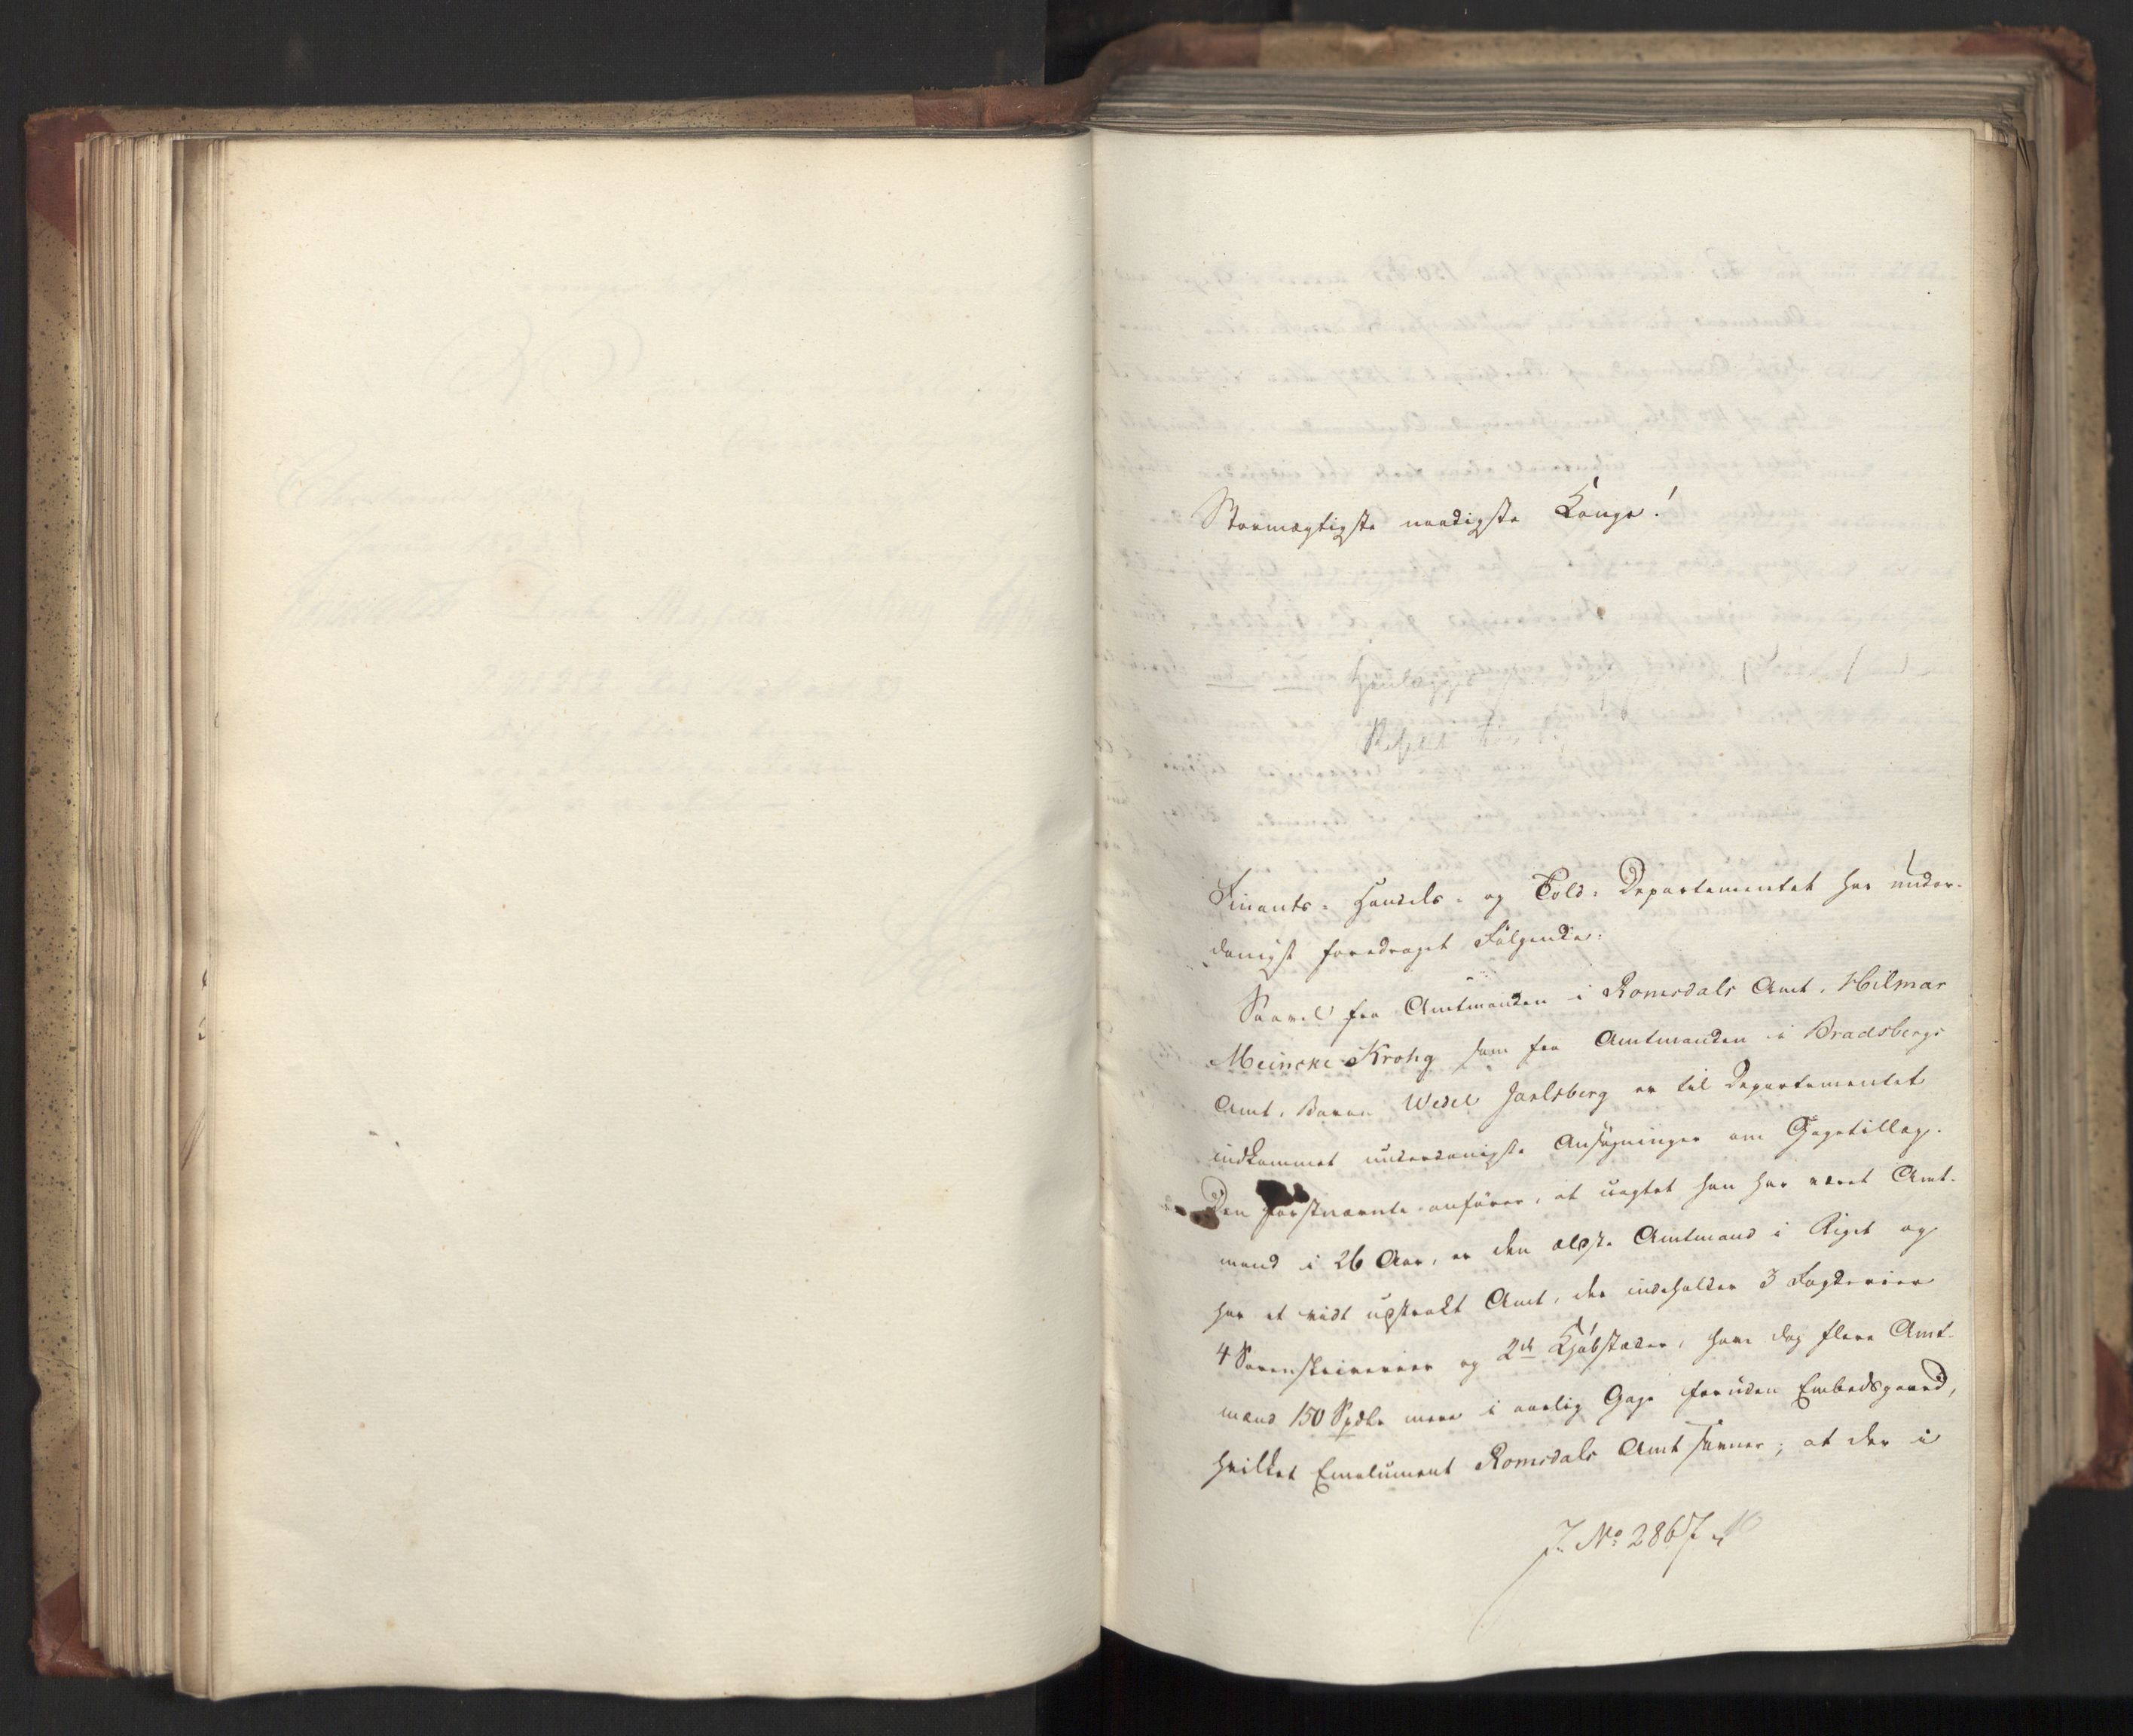 Stormægtigste naadigste Konge!
Henlægges
Finants-, Handels- og Told-Departementet har under-
danigst foredraget Følgende:
Saavel fra Amtmanden i Romsdals Amt, Hilmar
Meincke Krohg som fra Amtmanden i Bradsbergs
Amt, Baron Wedel Jarlsberg er til Departementet
indkommet underdanigste Ansøgninger om Gagetillæg.
Den førstnævnte anfører, at uagtet han har været Amt-
mand i 26 Aar, er den ælste Amtmand i Riget og
har et vidt udstrakt Amt, der indeholder 3 Fogderier
4 Sorenskriverier og 2de Kjøbstæder, have dog flere Amt-
mænd 150 Spdlr mere i aarlig Gage foruden Embedsgaard,
hvilket Emolument Romsdals Amt savner; at der i
J. No 2867